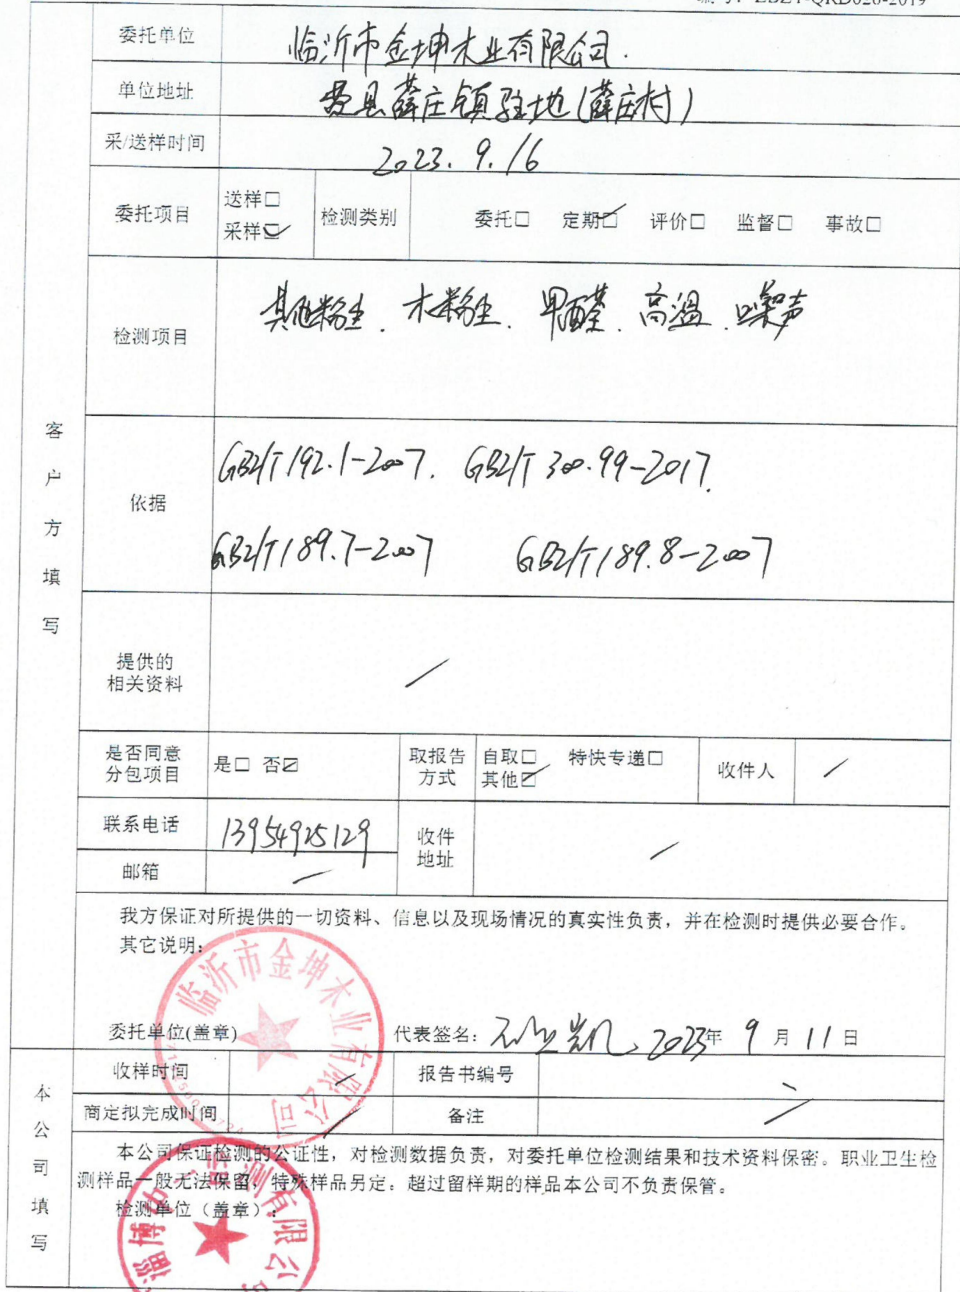 委托单位 临沂市金坤木业有限公司.
单位地址 费县薛庄镇驻地(薛庄村)
采/送样时间 2023.9.16
委托项目 送样□ 采样☑ 检测类别 委托□ 定期☑ 评价□ 监督□ 事故□
检测项目 其他粉尘、木粉尘、甲醛、高温、噪声
客户方填写
依据 GBZ/T192.1-2007. GBZ/T300.99-2017.
GBZ/T189.7-2007 GBZ/T189.8-2007
提供的
相关资料 /
是否同意
分包项目 是□ 否☑ 取报告
方式 自取□ 特快专递□
其他☑ 收件人 /
联系电话 13954925129 收件
地址 /
邮箱 /
我方保证对所提供的一切资料、信息以及现场情况的真实性负责，并在检测时提供必要合作。
其它说明：
临沂市金坤木业有限公司
委托单位(盖章) 代表签名： 2023年 9 月 11 日
本公司填写
收样时间 / 报告书编号
商定拟完成时间 / 备注 /
本公司保证检测的公证性，对检测数据负责，对委托单位检测结果和技术资料保密。职业卫生检
测样品一般无法保留，特殊样品另定。超过留样期的样品本公司不负责保管。
检测单位（盖章）：